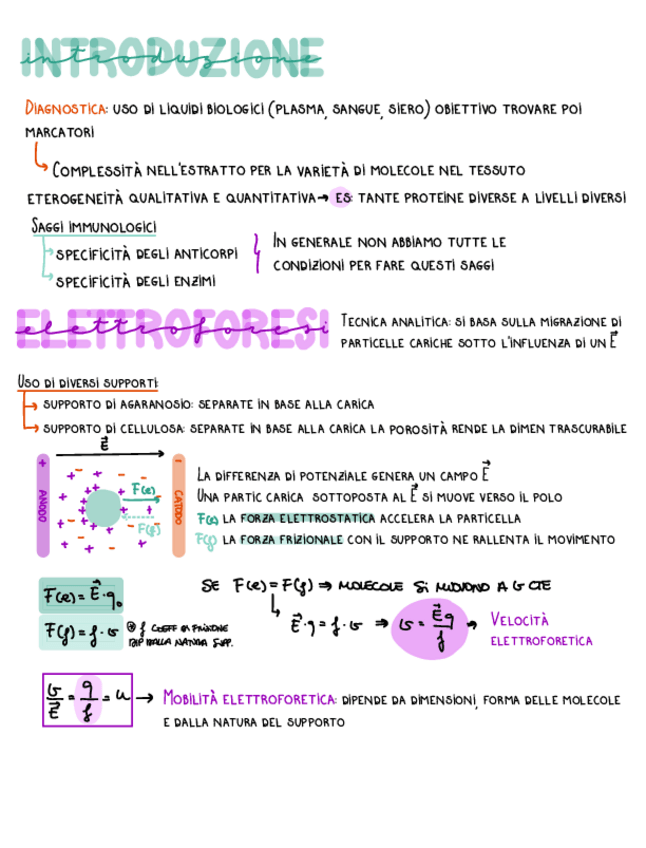 INTRODUZIONE
introduzione
DIAGNOSTICA: USO DI LIQUIDI BIOLOGICI (PLASMA, SANGUE, SIERO) OBIETTIVO TROVARE POI
MARCATORI
COMPLESSITÀ NELL'ESTRATTO PER LA VARIETÀ DI MOLECOLE NEL TESSUTO
ETEROGENEITÀ QUALITATIVA E QUANTITATIVA → ES: TANTE PROTEINE DIVERSE A LIVELLI DIVERSI
SAGGI IMMUNOLOGICI
SPECIFICITÀ DEGLI ANTICORPI
SPECIFICITÀ DEGLI ENZIMI
IN GENERALE NON ABBIAMO TUTTE LE
CONDIZIONI PER FARE QUESTI SAGGI
ELETTROFORESI
elettroforesi
TECNICA ANALITICA: SI BASA SULLA MIGRAZIONE DI
PARTICELLE CARICHE SOTTO L'INFLUENZA DI UN E⃗
USO DI DIVERSI SUPPORTI:
SUPPORTO DI AGARANOSIO: SEPARATE IN BASE ALLA CARICA
SUPPORTO DI CELLULOSA: SEPARATE IN BASE ALLA CARICA LA POROSITÀ RENDE LA DIMEN TRASCURABILE
E⃗
+ ANODO
F(e)
F(f)
- CATODO
LA DIFFERENZA DI POTENZIALE GENERA UN CAMPO E⃗
UNA PARTIC CARICA SOTTOPOSTA AL E⃗ SI MUOVE VERSO IL POLO
F(e) LA FORZA ELETTROSTATICA ACCELERA LA PARTICELLA
F(f) LA FORZA FRIZIONALE CON IL SUPPORTO NE RALLENTA IL MOVIMENTO
F(e) = E⃗·q
F(f) = f·v
f COEFF DI FRIZIONE
DIP DALLA NATURA SUPP.
SE F(e) = F(f) ⇒ MOLECOLE SI MUOVONO A v CTE
E⃗·q = f·v ⇒ v = E⃗q/f →
VELOCITÀ
ELETTROFORETICA
v/E⃗ = q/f = u → MOBILITÀ ELETTROFORETICA: DIPENDE DA DIMENSIONI, FORMA DELLE MOLECOLE
E DALLA NATURA DEL SUPPORTO